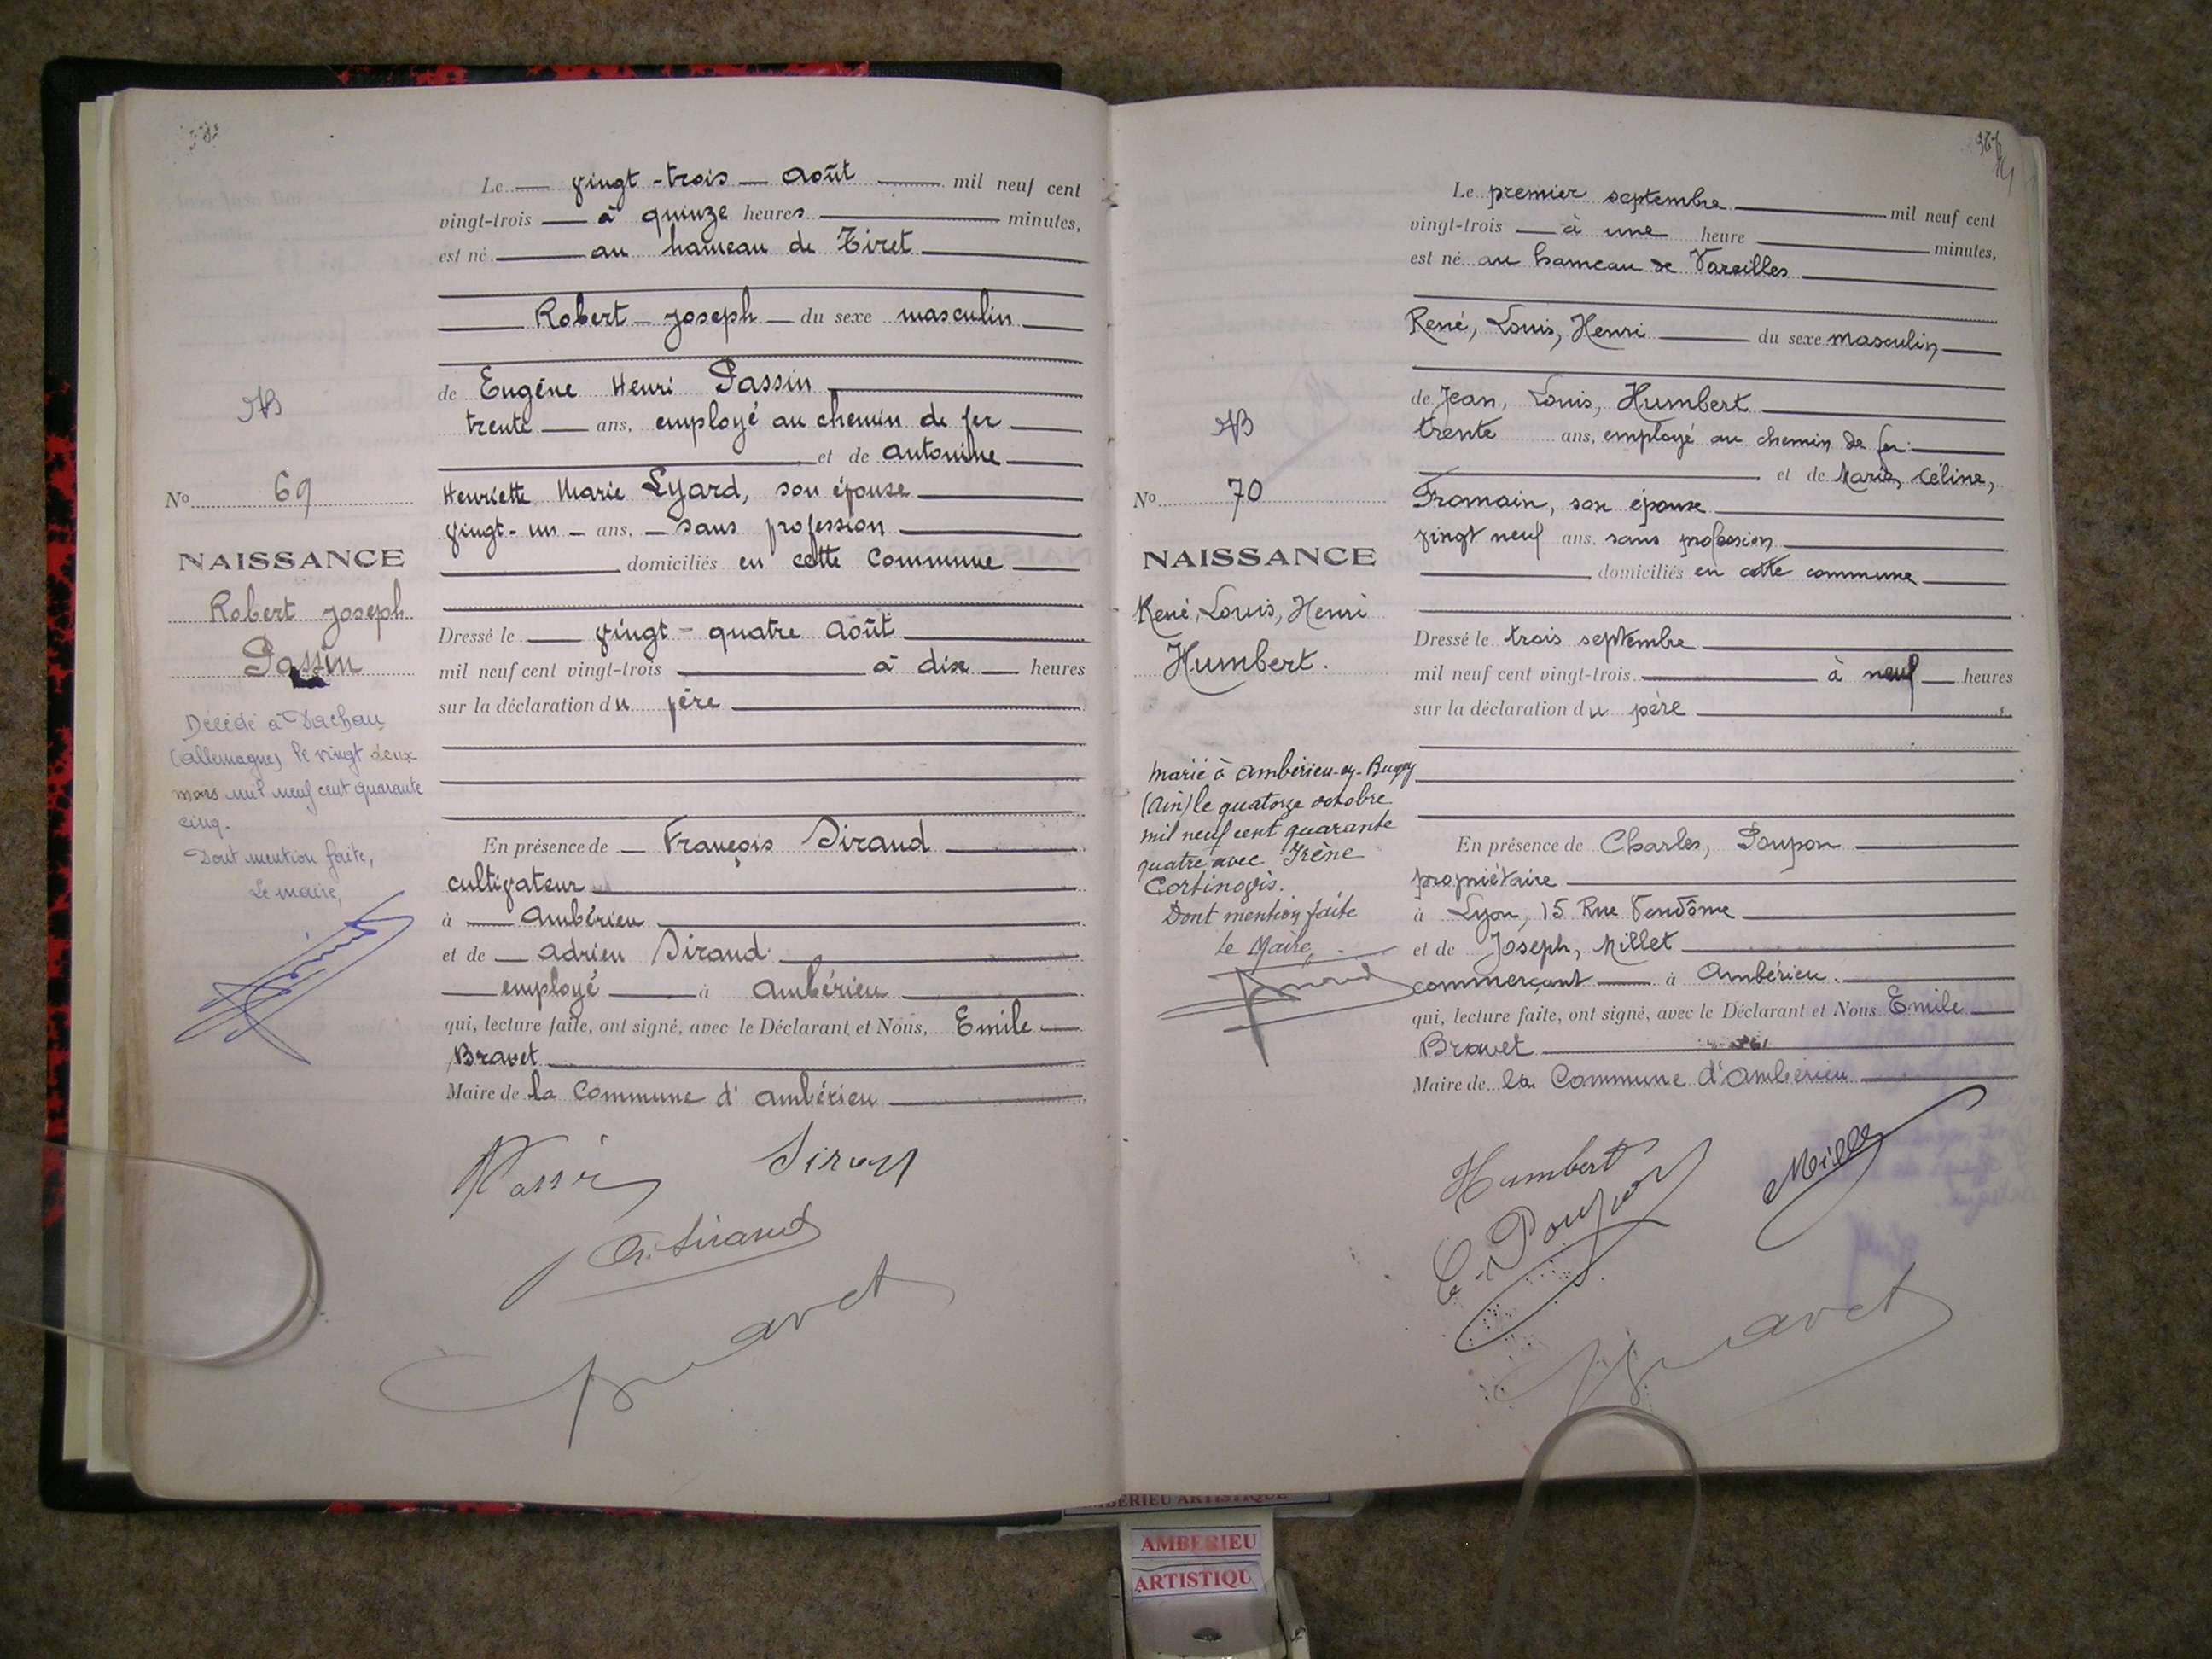 Le vingt-trois août mil neuf cent
vingt-trois à quinze heures minutes,
est né au hameau de Tiret
Robert Joseph du sexe masculin
de Eugène Henri Passin
trente ans, employé au chemin de fer
et de Antonine
Henriette Marie Lyard, son épouse
vingt-un ans, sans profession
domiciliés en cette Commune
Dressé le vingt-quatre Août
mil neuf cent vingt-trois à dix heures
sur la déclaration du père
En présence de François Siraud
cultivateur
à Ambérieu
et de Adrien Siraud
employé à Ambérieu
qui, lecture faite, ont signé, avec le Déclarant et Nous, Emile
Bravet
Maire de la Commune d'Ambérieu
Siraud
Bravet
No 69
NAISSANCE
Robert Joseph
Passin
Décédé à Dachau
(Allemagne) le vingt deux
mars mil neuf cent quarante
cinq.
Dont mention faite,
Le Maire,
Le premier septembre mil neuf cent
vingt-trois à une heure minutes,
est né au hameau de Vareilles
René, Louis, Henri du sexe masculin
de Jean, Louis, Humbert
trente ans, employé au chemin de fer
et de Marie, Céline,
Fromain, son épouse
vingt neuf ans, sans profession
domiciliés en cette commune
Dressé le trois septembre
mil neuf cent vingt-trois à neuf heures
sur la déclaration du père
En présence de Charles, Poupon
propriétaire
à Lyon, 15 Rue Vendôme
et de Joseph, Millet
commerçant à Ambérieu.
qui, lecture faite, ont signé, avec le Déclarant et Nous Emile
Bravet
Maire de la Commune d'Ambérieu
Humbert
C. Poupon
Millet
Bravet
No 70
NAISSANCE
René, Louis, Henri
Humbert.
Marié à Ambérieu-en-Bugey
(Ain) le quatorze octobre
mil neuf cent quarante
quatre avec Irène
Cortinovis.
Dont mention faite
Le Maire,
AMBERIEU ARTISTIQUE
AMBERIEU
ARTISTIQU